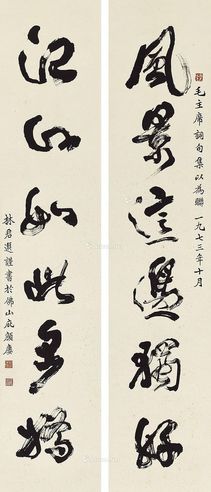 風景這邊獨好
毛主席詞句集以為聯 一九七三年十月
江山如此多嬌
林君選謹書於佛山底顏廔